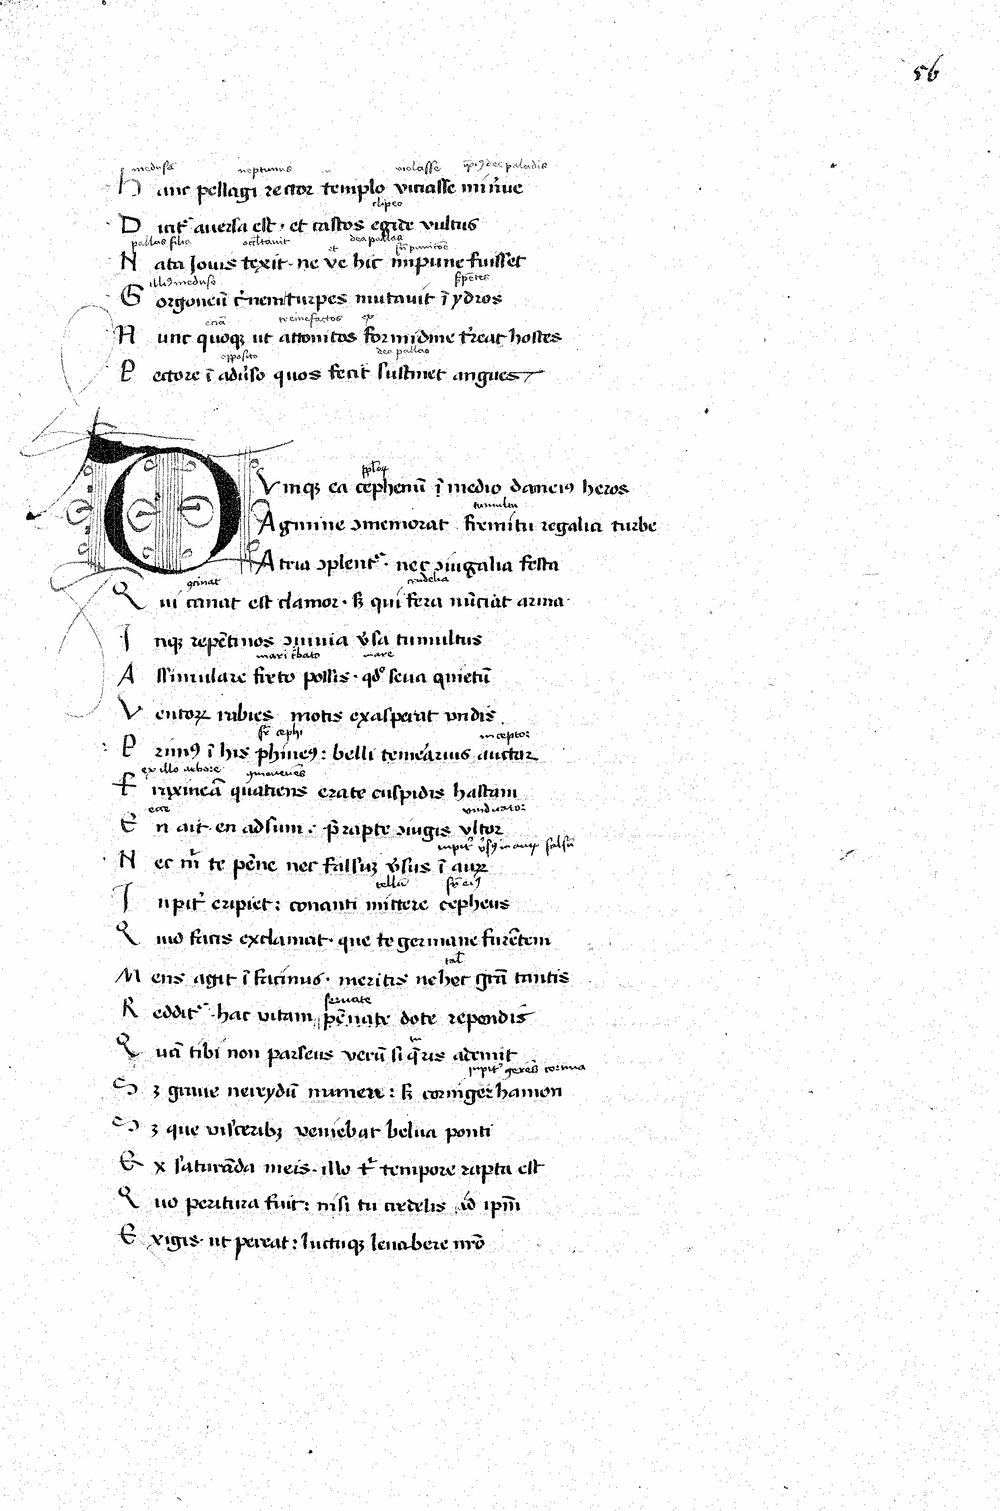 56
medusã neptunus violasse
H anc pellagi rector templo viciasse min̄ue
clipeo
D icit᷑ auersa est · et castos egide vultus
pallas filia occultauit dea pallas
N ata Jouis texit · ne ve hic ĩmpune fuisset
illiꝰ meduse serpẽtes
G orgoneũ c̾nem turpes mutauit ĩ ydros
eciã tremefactos
N unc quoqꝫ ut attonitos formidine t̾reat hostes
opposito dea pallas
P ectore ĩ aduso quos fecit sustinet angues
D Vmqꝫ ea cephenũ ĩ medio daneiꝰ heros
tumultu
Agmine ↄmemorat fremitu regalia turbe
Atria ↄplent᷑ · nec ↄiugalia festa
crudelia
Q ui canat est clamor · sꝫ qui fera nũciat arma
I nqꝫ repẽtinos ↄuiuia v̾sa tumultus
mari t̾bato mare
A ssimulare freto possis · qd̊ seua quietũ
V entoꝝ rabies motis exasperat vndis
fr̃ cephi inceptor
P rimꝰ ĩ his phineꝰ : belli temerarius auctor
ex illo arbore
F rixineã quatiens erate cuspidis hastam
ecce vindicator
E n ait · en adsum : p̄rapte ↄiugis vltor
N ec m̃ te pẽne nec falsuꝫ v̾sus ĩ auꝝ
tellũ fr̃ eiꝰ
I upit᷑ eripiet : conanti mittere cepheus
Q uid facis exclamat · que te germane furẽtem
tal̃
M ens agit ĩ facinus · meritis ne hec gr̃a tantis
seruate
R eddit᷑ · hac vitam pẽuate dote rependis
Q uã tibi non parseus verũ si q̃ris ademit
S ꝫ graue nereydũ numere : sꝫ corniger hamon
S ꝫ que visceribꝫ veniebat belua ponti
E x saturãda meis · illo t̾ tempore rapta est
Q uo peritura fuit : nisi tu credelis id ipm̃
E xigis · ut pereat : luctuqꝫ leuabere nr̃o